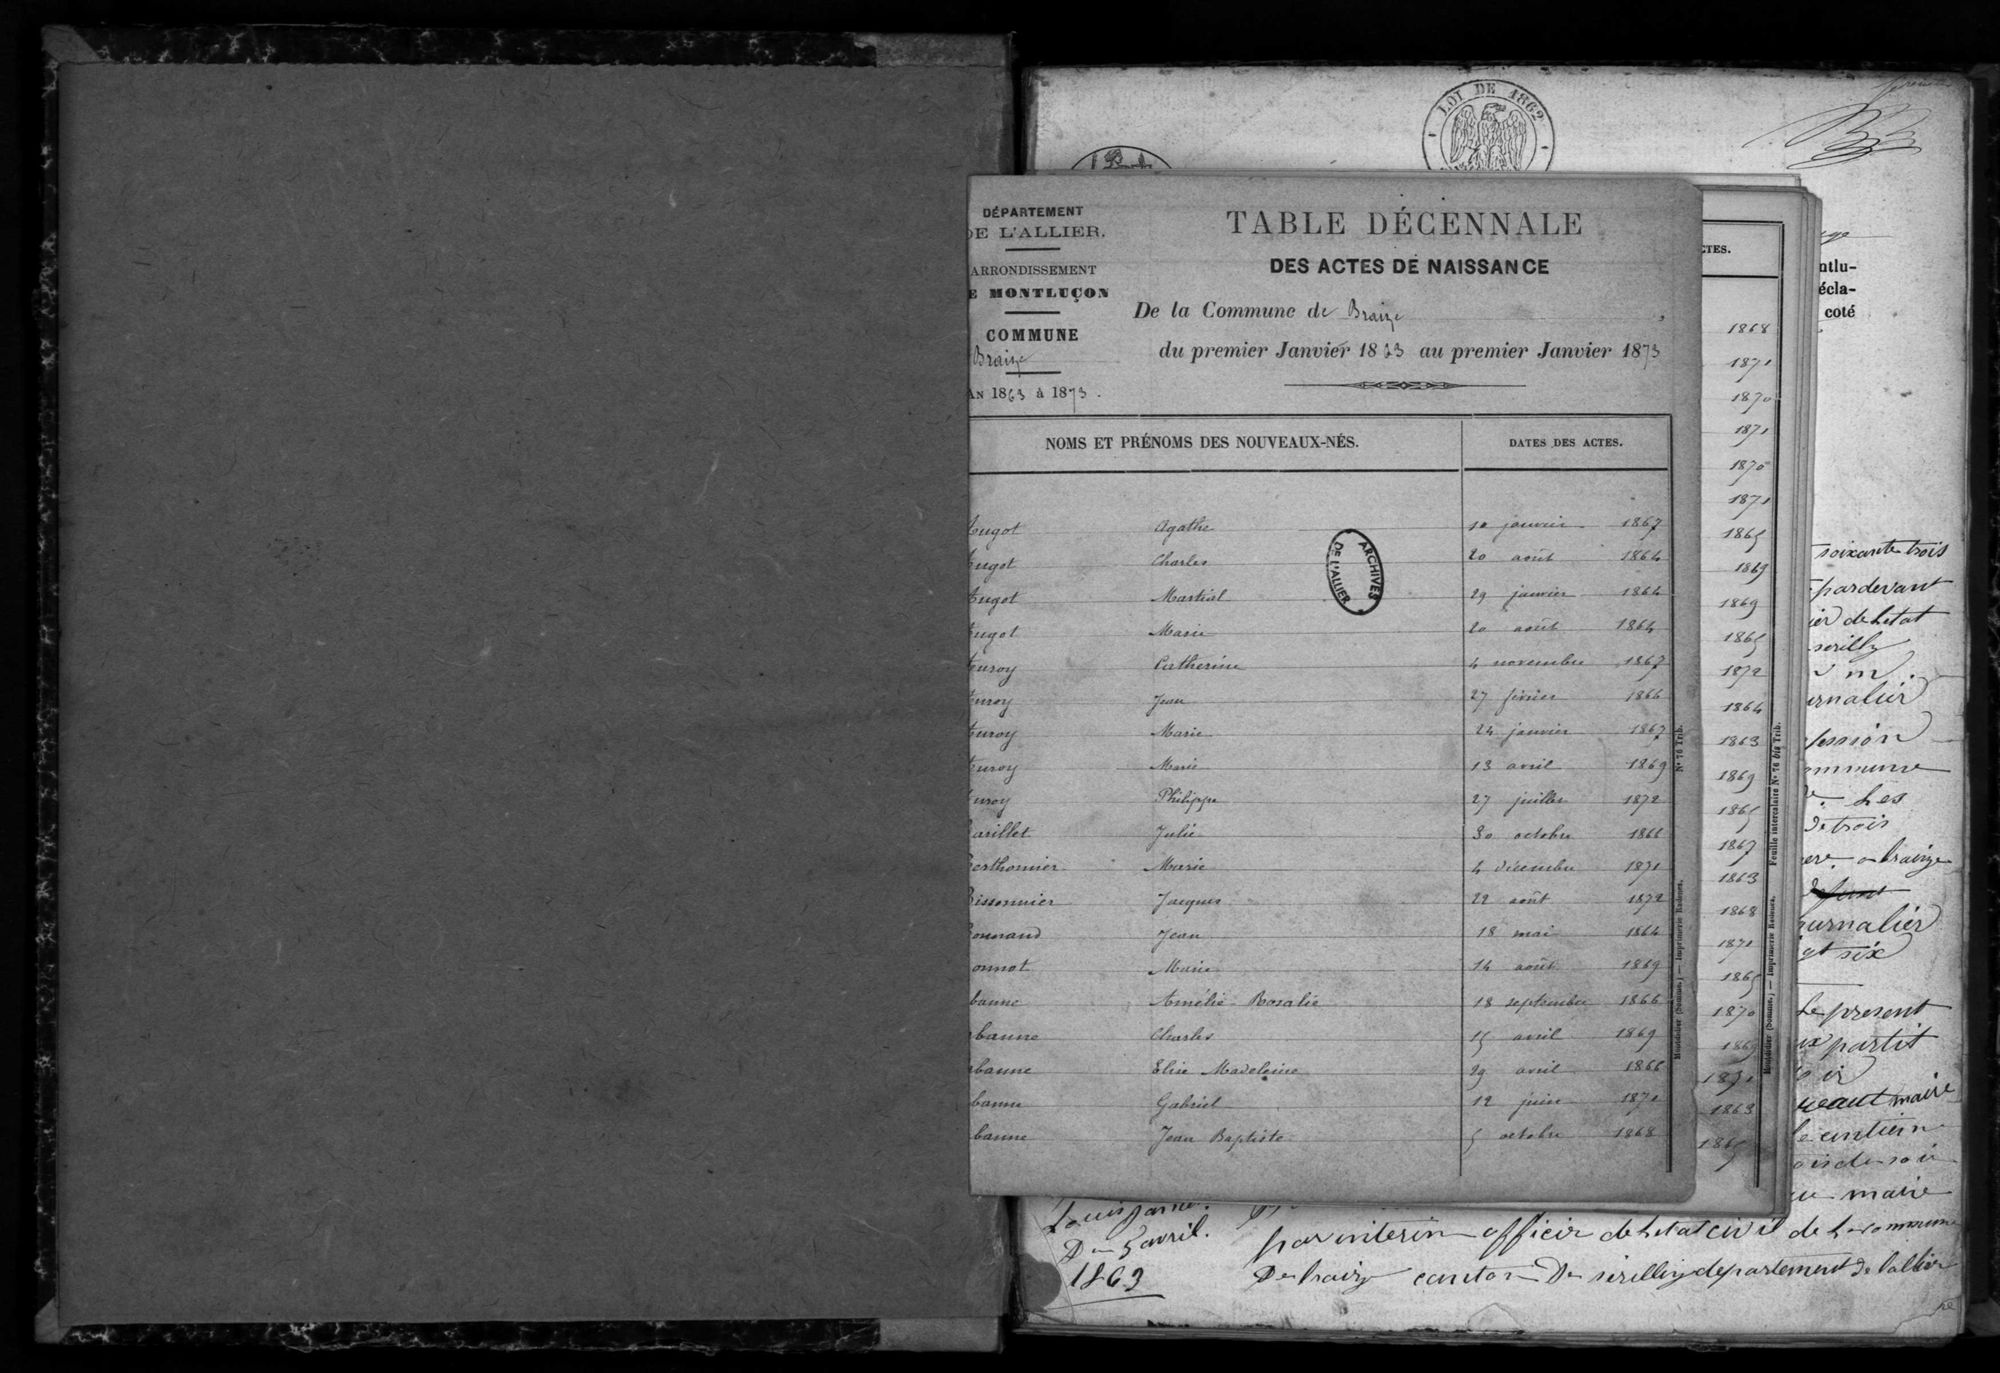 LOI DE 1862
DÉPARTEMENT
DE L'ALLIER.
ARRONDISSEMENT
E MONTLUÇON
COMMUNE
Braize
AN 1863 à 1873.
TABLE DÉCENNALE
DES ACTES DE NAISSANCE
De la Commune de Braize
du premier Janvier 1863 au premier Janvier 1873
NOMS ET PRÉNOMS DES NOUVEAUX-NÉS. DATES DES ACTES.
Augot Agathe 10 janvier 1867
Augot Charles 20 août 1864
Augot Martial 29 janvier 1864
Augot Marie 20 août 1864
Auroy Catherine 4 novembre 1867
Auroy Jean 27 février 1866
Auroy Marie 24 janvier 1867
Auroy Marie 13 avril 1869
Auroy Philippe 27 juillet 1872
Barillet Julie 30 octobre 1866
Berthomier Marie 4 décembre 1871
Bissonnier Jacques 22 août 1872
Bonnand Jean 18 mai 1864
onnot Marie 14 août 1869
banne Amélie Rosalie 18 septembre 1866
banne Charles 15 avril 1869
banne Elise Madeleine 29 avril 1866
banne Gabriel 12 juin 1871
banne Jean Baptiste 5 octobre 1868
ARCHIVES
DE L'ALLIER
Montdidier (Somme.) — Imprimerie Radenez. N° 76 Trib.
CTES.
1868
1871
1870
1871
1870
1871
1865
1869
1869
1865
1872
1864
1863
1869
1865
1867
1863
1868
1871
1865
1870
1871
1863
1865
Montdidier (Somme.) — Imprimerie Radenez. Feuille intercalaire N° 76 bis Trib.
ntlu-
écla-
coté
soixante trois
pardevant
ier de letat
serilly
urnalier
fession
ommune
Les
de trois
ere a braize
journalier
gt six
Le present
ux partit
maire
ois de
maire
5 avril.
1863
par interin officier de letat civil de la commune
De braize canton De serilly departement de lallier